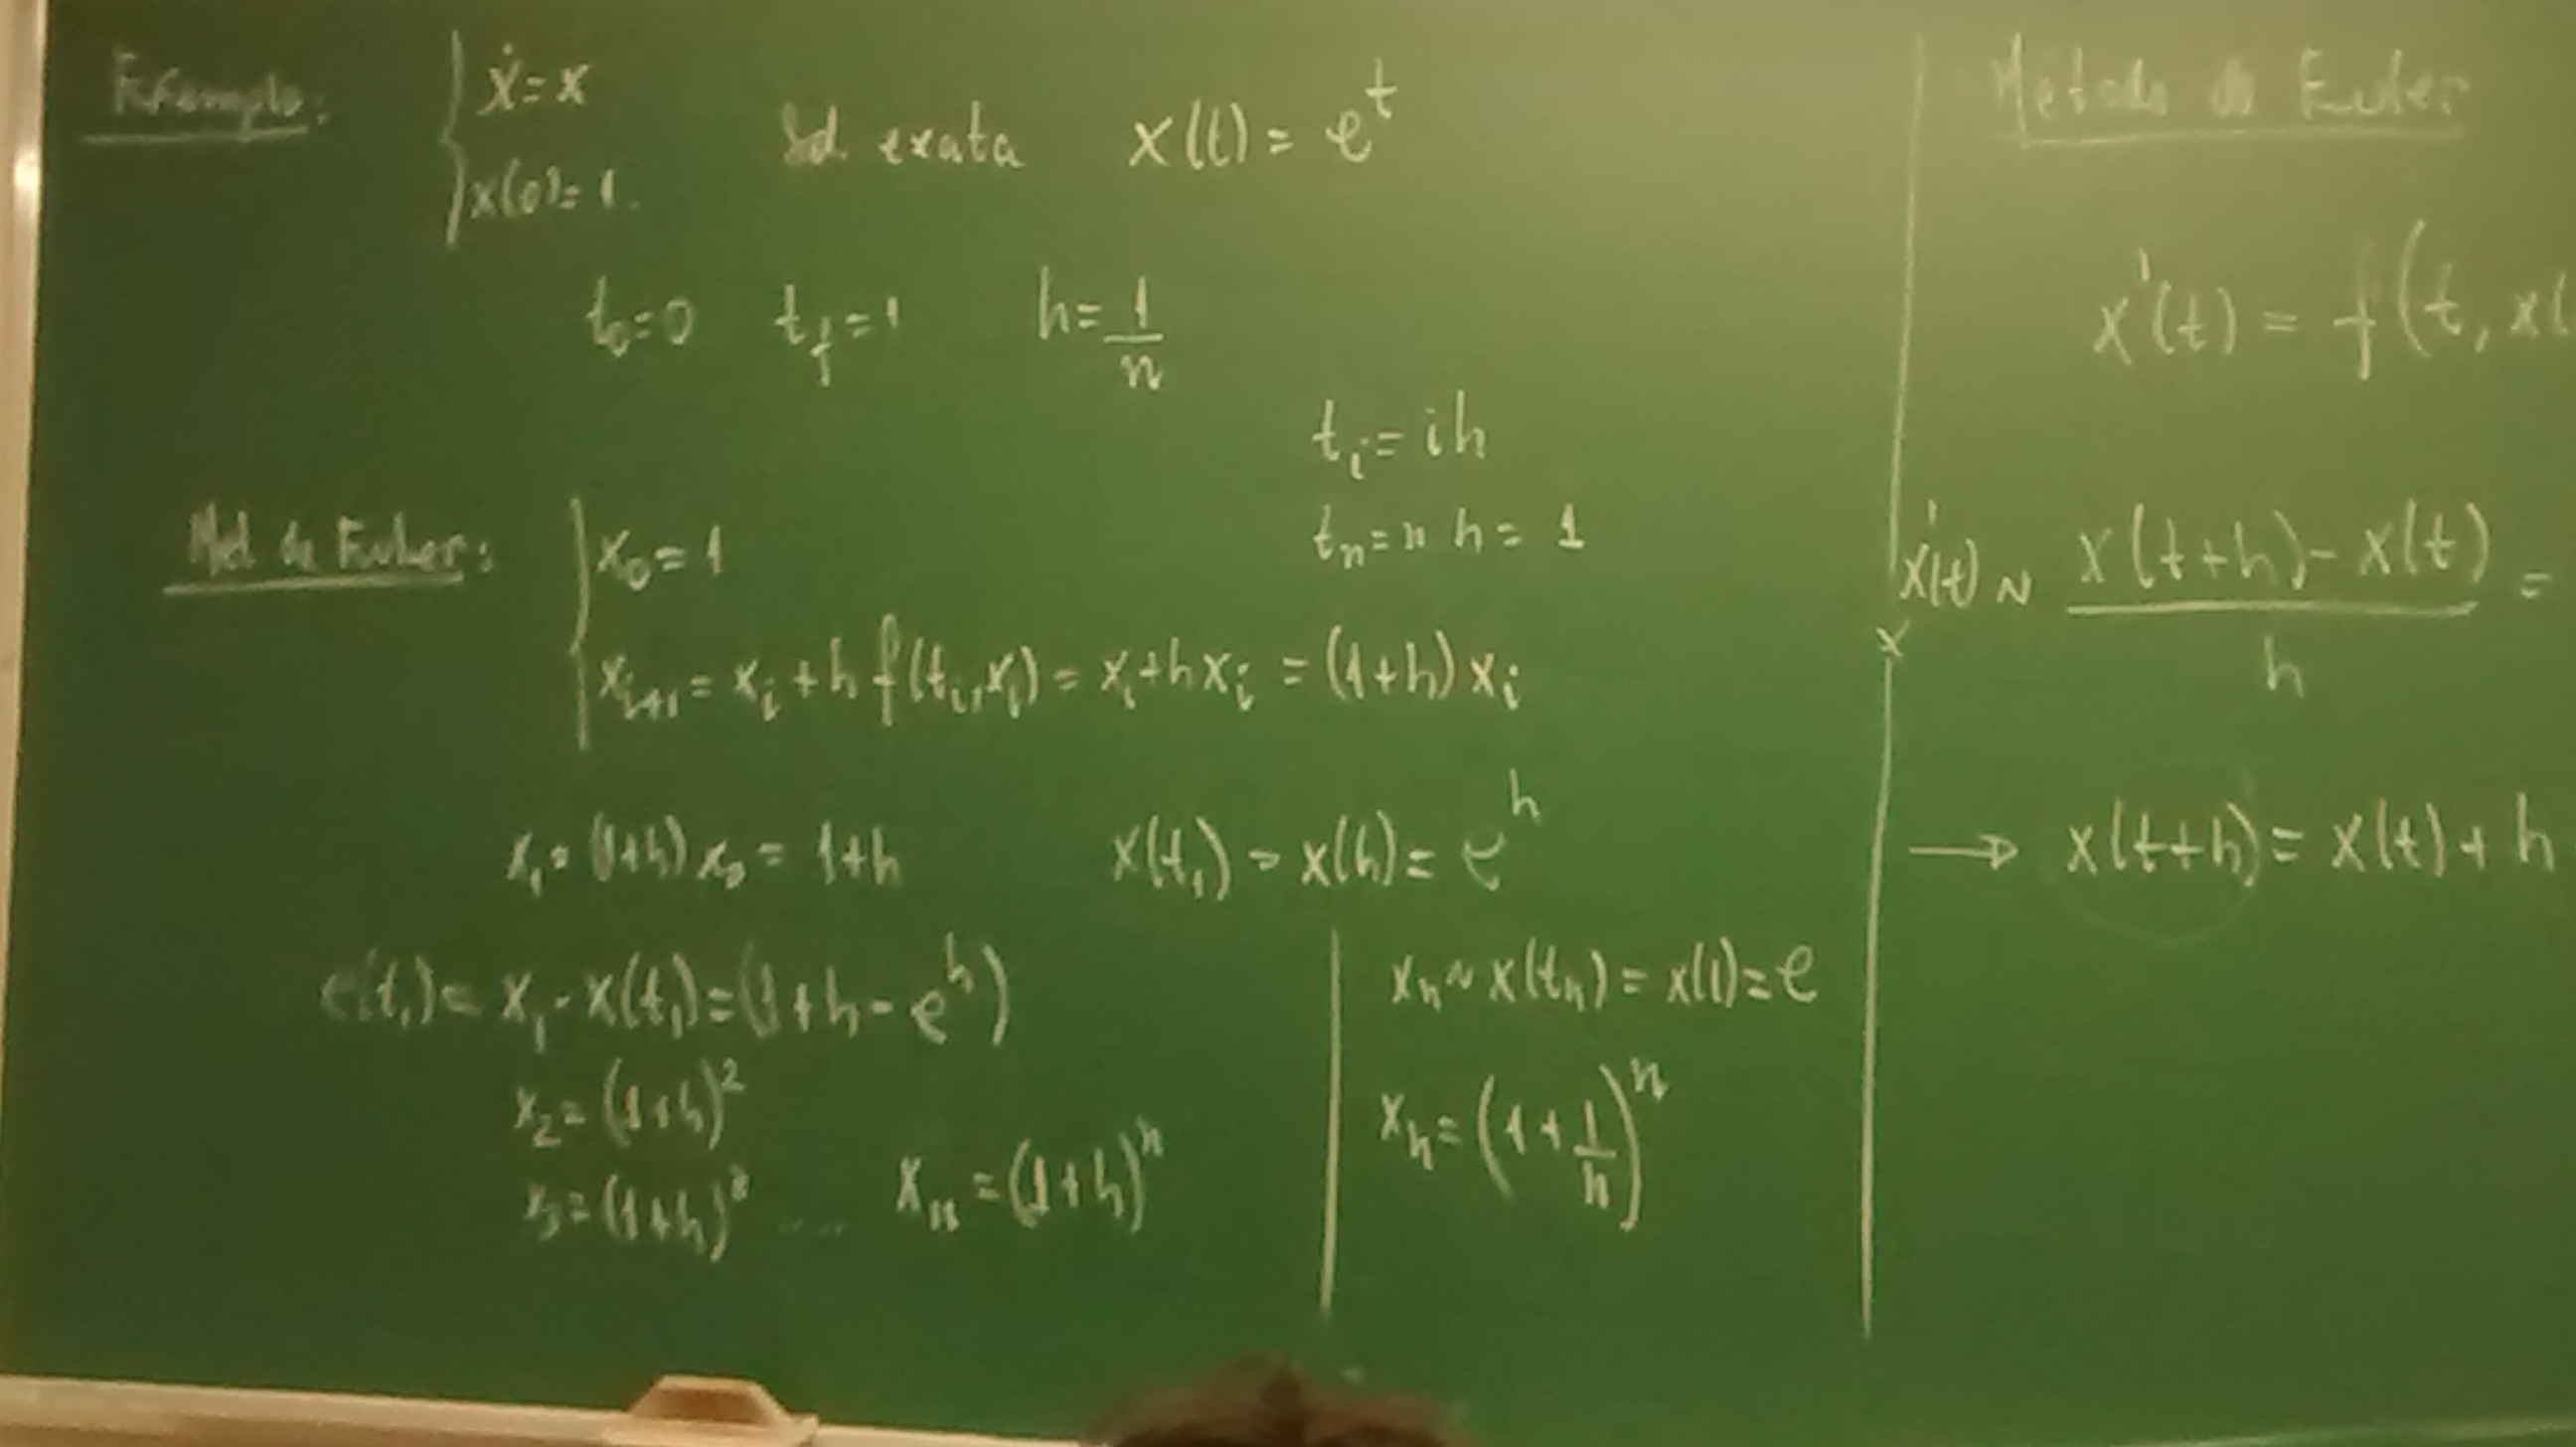 Exemplo: { ẋ = x
x(0) = 1.
Sol. exata x(t) = e^t
t_0 = 0 t_f = 1 h = 1/n
t_i = ih
t_n = n h = 1
Met. de Euler: { x_0 = 1
x_{i+1} = x_i + h f(t_i, x_i) = x_i + h x_i = (1+h) x_i
x_1 = (1+h) x_0 = 1+h x(t_1) = x(h) = e^h
e(t_1) = x_1 - x(t_1) = (1+h - e^h)
x_2 = (1+h)^2
x_3 = (1+h)^3 .... x_n = (1+h)^n
x_n ~ x(t_n) = x(1) = e
x_n = (1 + 1/n)^n
Metodo de Euler
x'(t) = f(t, x(
x'(t) ~ (x(t+h) - x(t))/h =
→ x(t+h) = x(t) + h